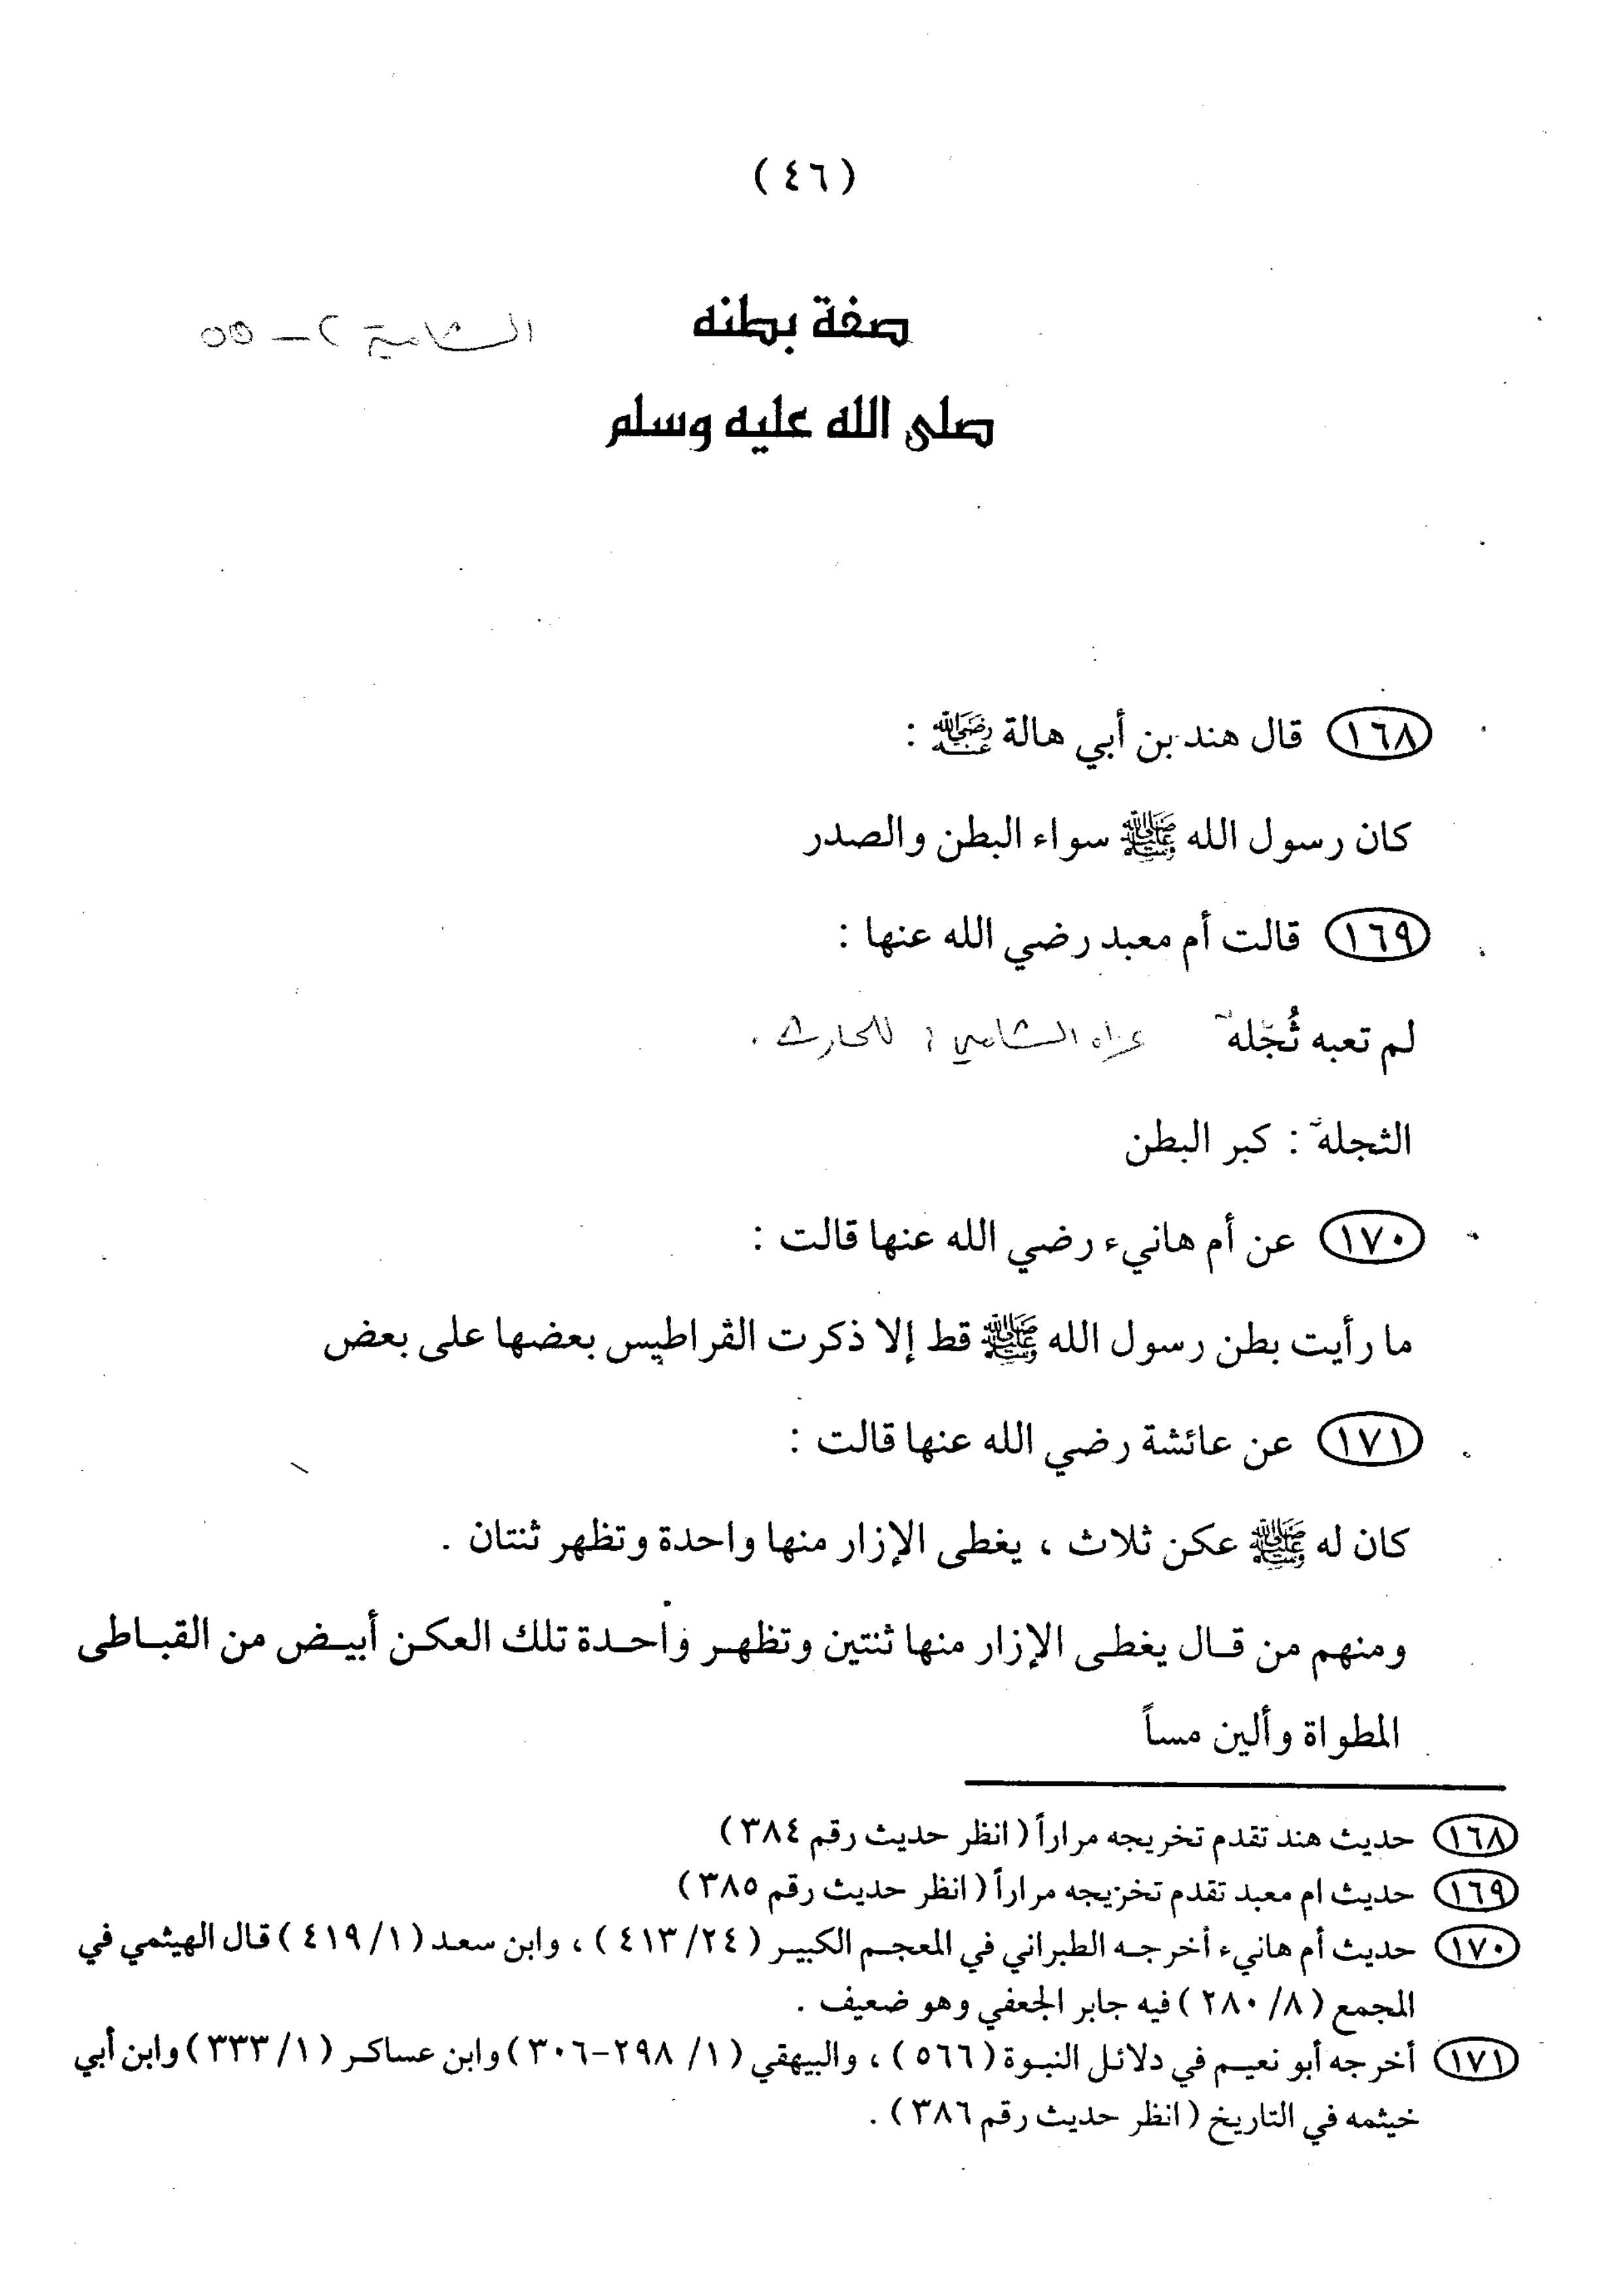 ( ٤٦ )
صفة بطنه
الشامية ٢ – ٥٥
صلى الله عليه وسلم
١٦٨ قال هند بن أبي هالة رضي الله عنه :
كان رسول الله ﷺ سواء البطن والصدر
١٦٩ قالت أم معبد رضي الله عنها :
لم تعبه ثُجّله عزاه الشامي : للحارث .
الثجله : كبر البطن
١٧٠ عن أم هانيء رضي الله عنها قالت :
ما رأيت بطن رسول الله ﷺ قط إلا ذكرت القراطيس بعضها على بعض
١٧١ عن عائشة رضي الله عنها قالت :
كان له ﷺ عكن ثلاث ، يغطى الإزار منها واحدة وتظهر ثنتان .
ومنهم من قال يغطى الإزار منها ثنتين وتظهر واحدة تلك العكن أبيض من القباطى
المطواة وألين مساً
١٦٨ حديث هند تقدم تخريجه مراراً ( انظر حديث رقم ٣٨٤ )
١٦٩ حديث ام معبد تقدم تخزيجه مراراً ( انظر حديث رقم ٣٨٥ )
١٧٠ حديث أم هانيء أخرجه الطبراني في المعجم الكبير ( ٢٤/ ٤١٣ ) ، وابن سعد ( ١/ ٤١٩ ) قال الهيثمي في
المجمع ( ٨/ ٢٨٠ ) فيه جابر الجعفي وهو ضعيف .
١٧١ أخرجه أبو نعيم في دلائل النبوة ( ٥٦٦ ) ، والبيهقي ( ١/ ٢٩٨-٣٠٦ ) وابن عساكر ( ١/ ٣٣٣ ) وابن أبي
خيثمه في التاريخ ( انظر حديث رقم ٣٨٦ ) .